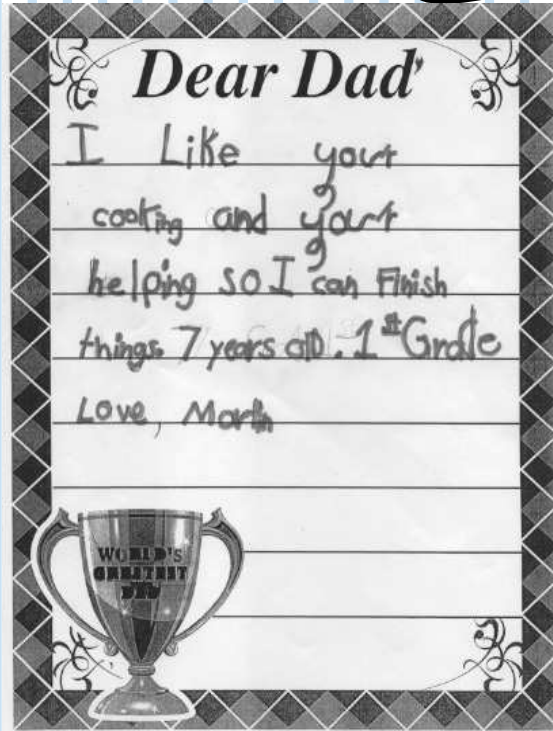 Dear Dad
I Like your
cooking and your
helping so I can Finish
things. 7 years olD. 1st Grade
Love, Martin
WORLD'S
GREATEST
DAD